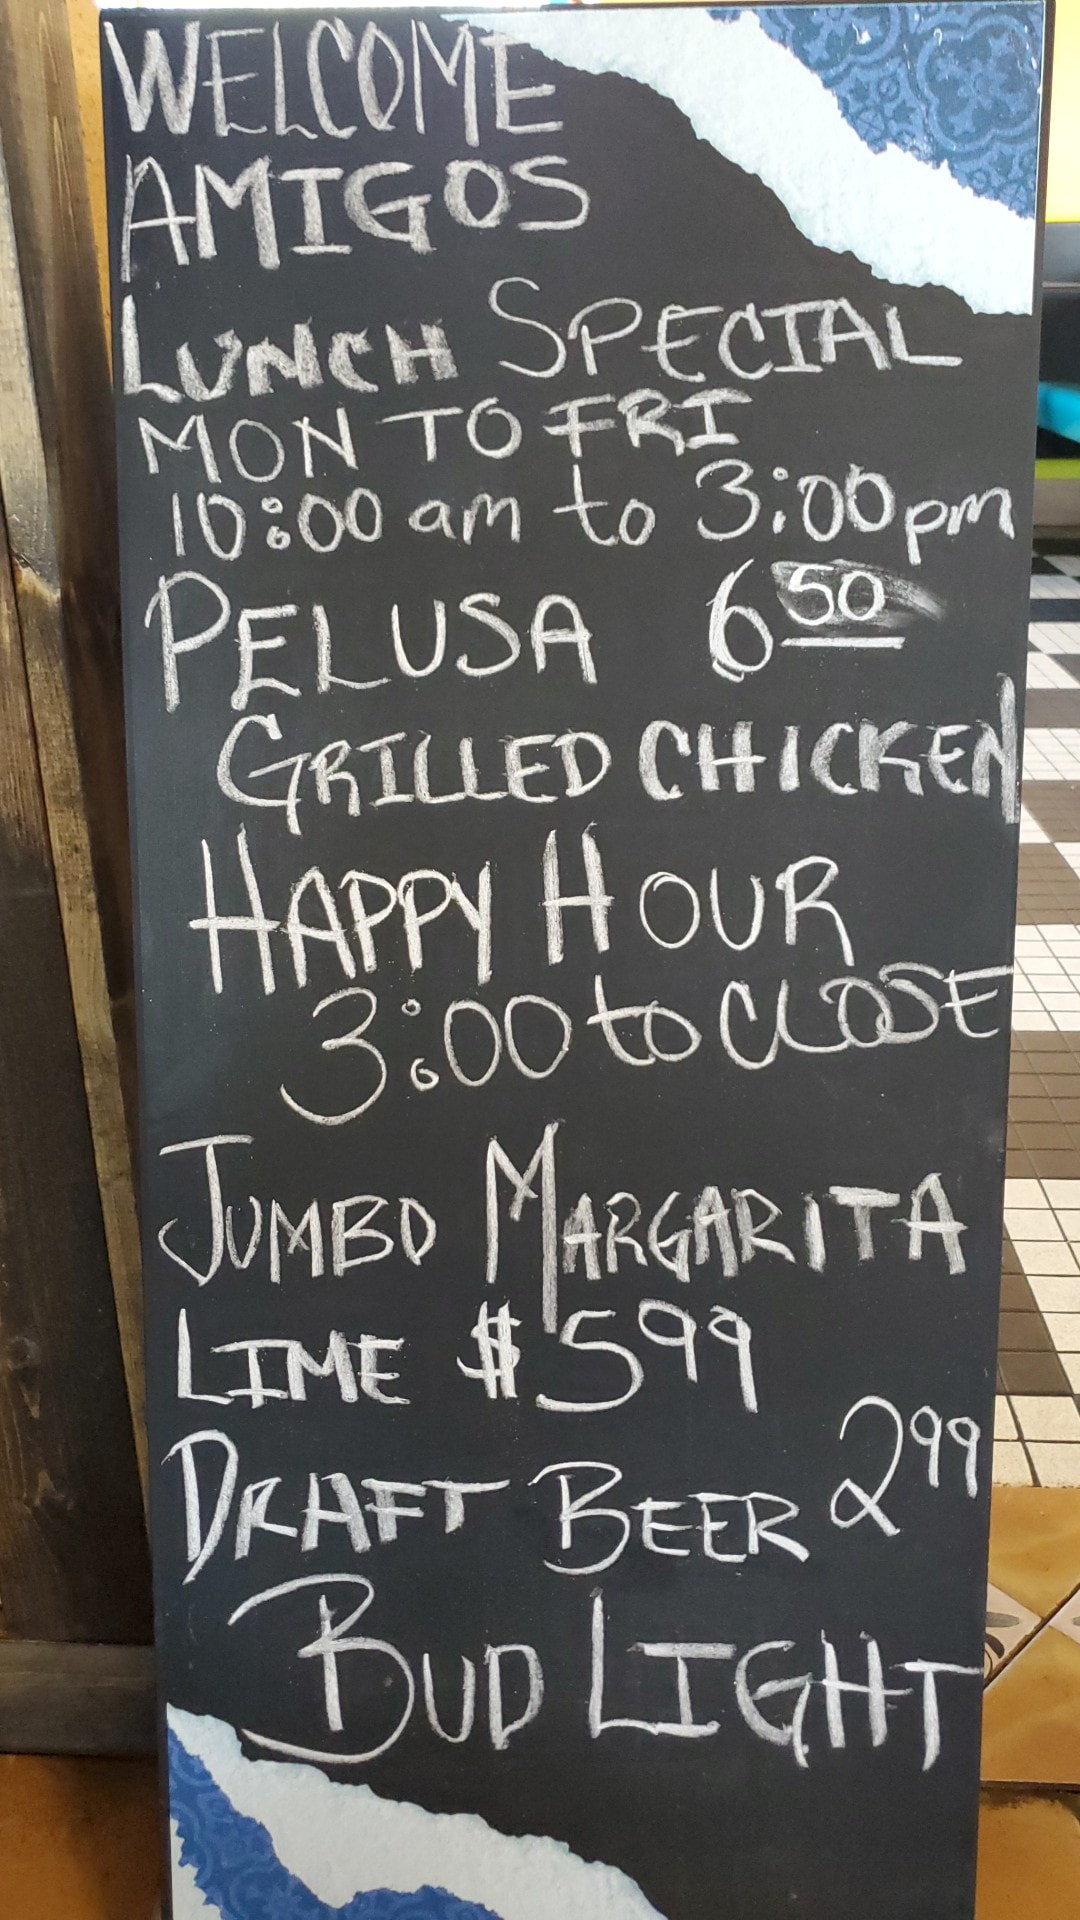 WELCOME
AMIGOS
LUNCH SPECIAL
MON TO FRI
10:00 am to 3:00 pm
PELUSA 6 50
GRILLED CHICKEN
HAPPY HOUR
3:00 to CLOSE
JUMBO MARGARITA
LIME $5 99
DRAFT BEER 2 99
BUD LIGHT